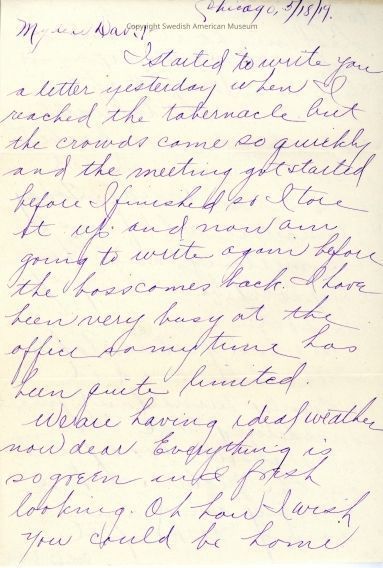 Chicago, 5/18/19.
Copyright Swedish American Museum
My own Dav.!
I started to write you
a letter yesterday when I
reached the tabernacle but
the crowds came so quickly
and the meeting got started
before I finished so I tore
it up and now am
going to write again before
the boss comes back. I have
been very busy at the
office so my time has
been quite limited.
We are having ideal weather
now dear. Everything is
so green and fresh
looking. Oh how I wish
you could be home